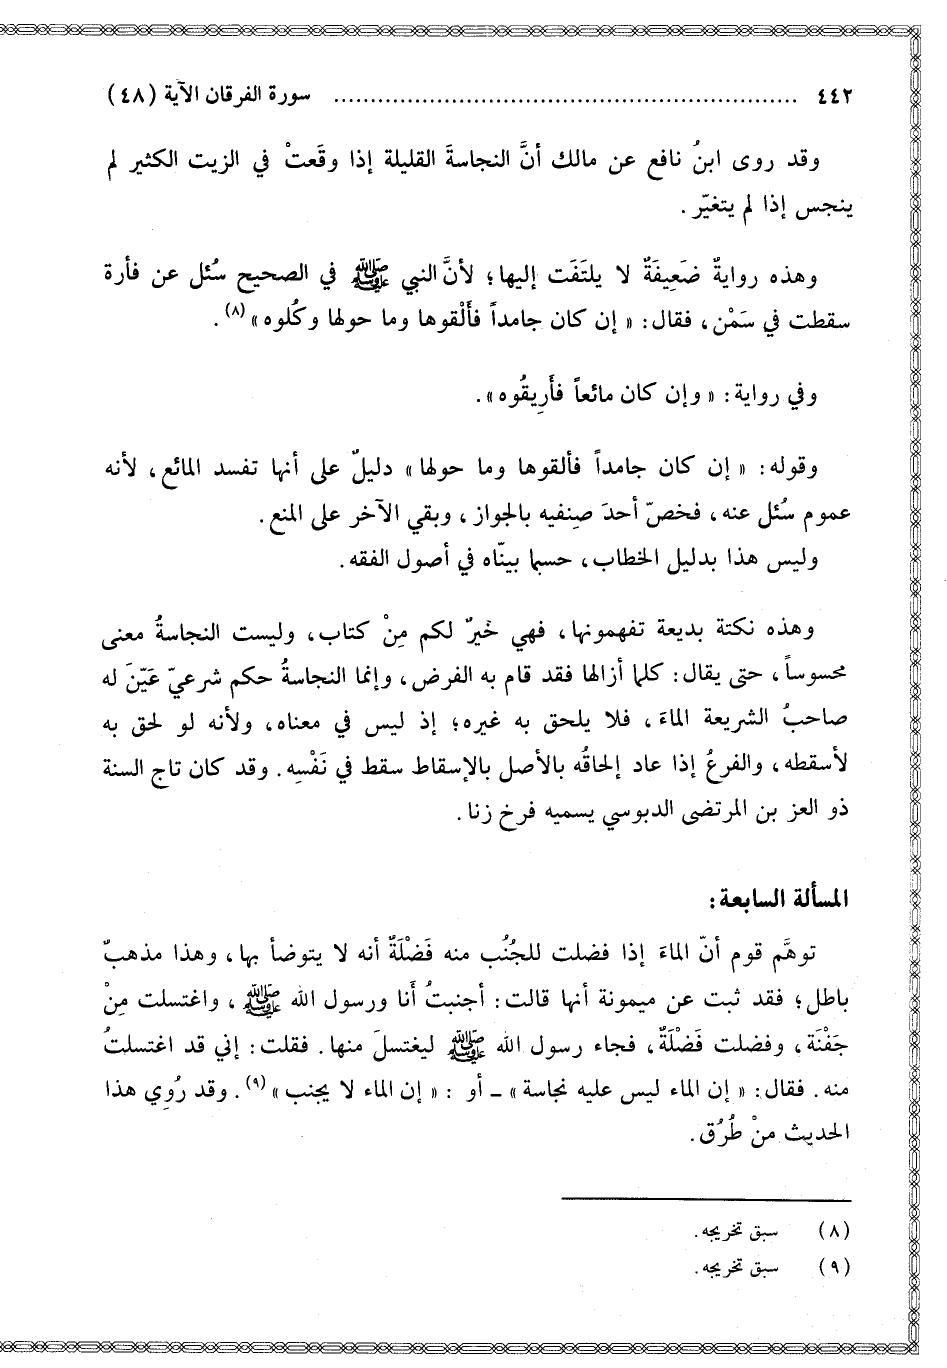 ٤٤٢ ................................................................ سورة الفرقان الآية (٤٨)
وقد روى ابنُ نافع عن مالك أنَّ النجاسةَ القليلة إذا وقَعتْ في الزيت الكثير لم
ينجس إذا لم يتغيّر .
وهذه روايةٌ ضَعِيفَةٌ لا يلتَفَت إليها؛ لأنَّ النبي ﷺ في الصحيح سُئل عن فأرة
سقطت في سَمْن، فقال: « إن كان جامداً فأَلْقوها وما حولها وكُلوه »(٨) .
وفي رواية: « وإن كان مائعاً فأَرِيقُوه ».
وقوله: « إن كان جامداً فألقوها وما حولها » دليلٌ على أنها تفسد المائع، لأنه
عموم سُئل عنه، فخصّ أحدَ صِنفيه بالجواز، وبقي الآخر على المنع.
وليس هذا بدليل الخطاب، حسبما بينّاه في أصول الفقه.
وهذه نكتة بديعة تفهمونها، فهي خَيرٌ لكم مِنْ كتاب، وليست النجاسةُ معنى
محسوساً، حتى يقال: كلما أزالها فقد قام به الفرض، وإنما النجاسةُ حكم شرعيّ عَيّنَ له
صاحبُ الشريعة الماءَ، فلا يلحق به غيره؛ إذ ليس في معناه، ولأنه لو لحق به
لأسقطه، والفرعُ إذا عاد إلحاقُه بالأصل بالإسقاط سقط في نَفْسِه. وقد كان تاج السنة
ذو العز بن المرتضى الدبوسي يسميه فرخ زنا.
المسألة السابعة:
توهَّم قوم أنّ الماءَ إذا فضلت للجُنُب منه فَضْلَةٌ أنه لا يتوضأ بها، وهذا مذهبٌ
باطل؛ فقد ثبت عن ميمونة أنها قالت: أجنبتُ أنا ورسول الله ﷺ، واغتسلت مِنْ
جَفْنَة، وفضلت فَضْلَةٌ، فجاء رسول الله ﷺ ليغتسلَ منها. فقلت: إني قد اغتسلتُ
منه. فقال: « إن الماء ليس عليه نجاسة » ـ أو : « إن الماء لا يجنب »(٩). وقد رُوِي هذا
الحديث منْ طُرُق.
(٨) سبق تخريجه.
(٩) سبق تخريجه.